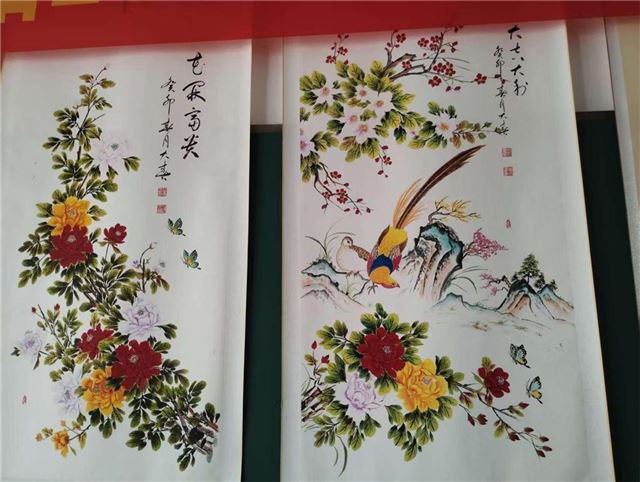 花开富贵
癸卯春月大
大吉大利
癸卯春月大